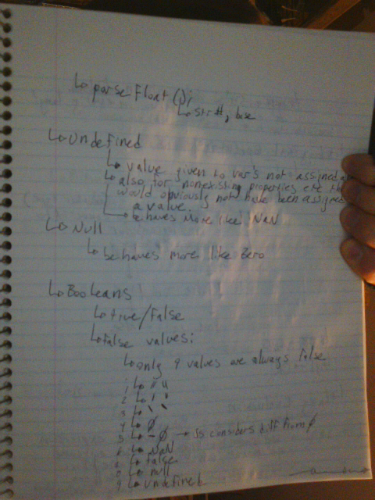 ↳ parseFloat();
↳ str#, base
↳ Undefined
↳ value given to var's not assigned a
↳ also for nonexisting properties etc. th
would obviously not have been assigned
a value
↳ behaves more like NaN
↳ Null
↳ behaves more like Zero
↳ Booleans
↳ true/False
↳ False values:
↳ only 9 values are always false
1 ↳ " "
2 ↳ ' '
3 ↳ ` `
4 ↳ 0
5 ↳ -0 → is considers diff from 0
6 ↳ NaN
7 ↳ false
8 ↳ null
9 ↳ undefined